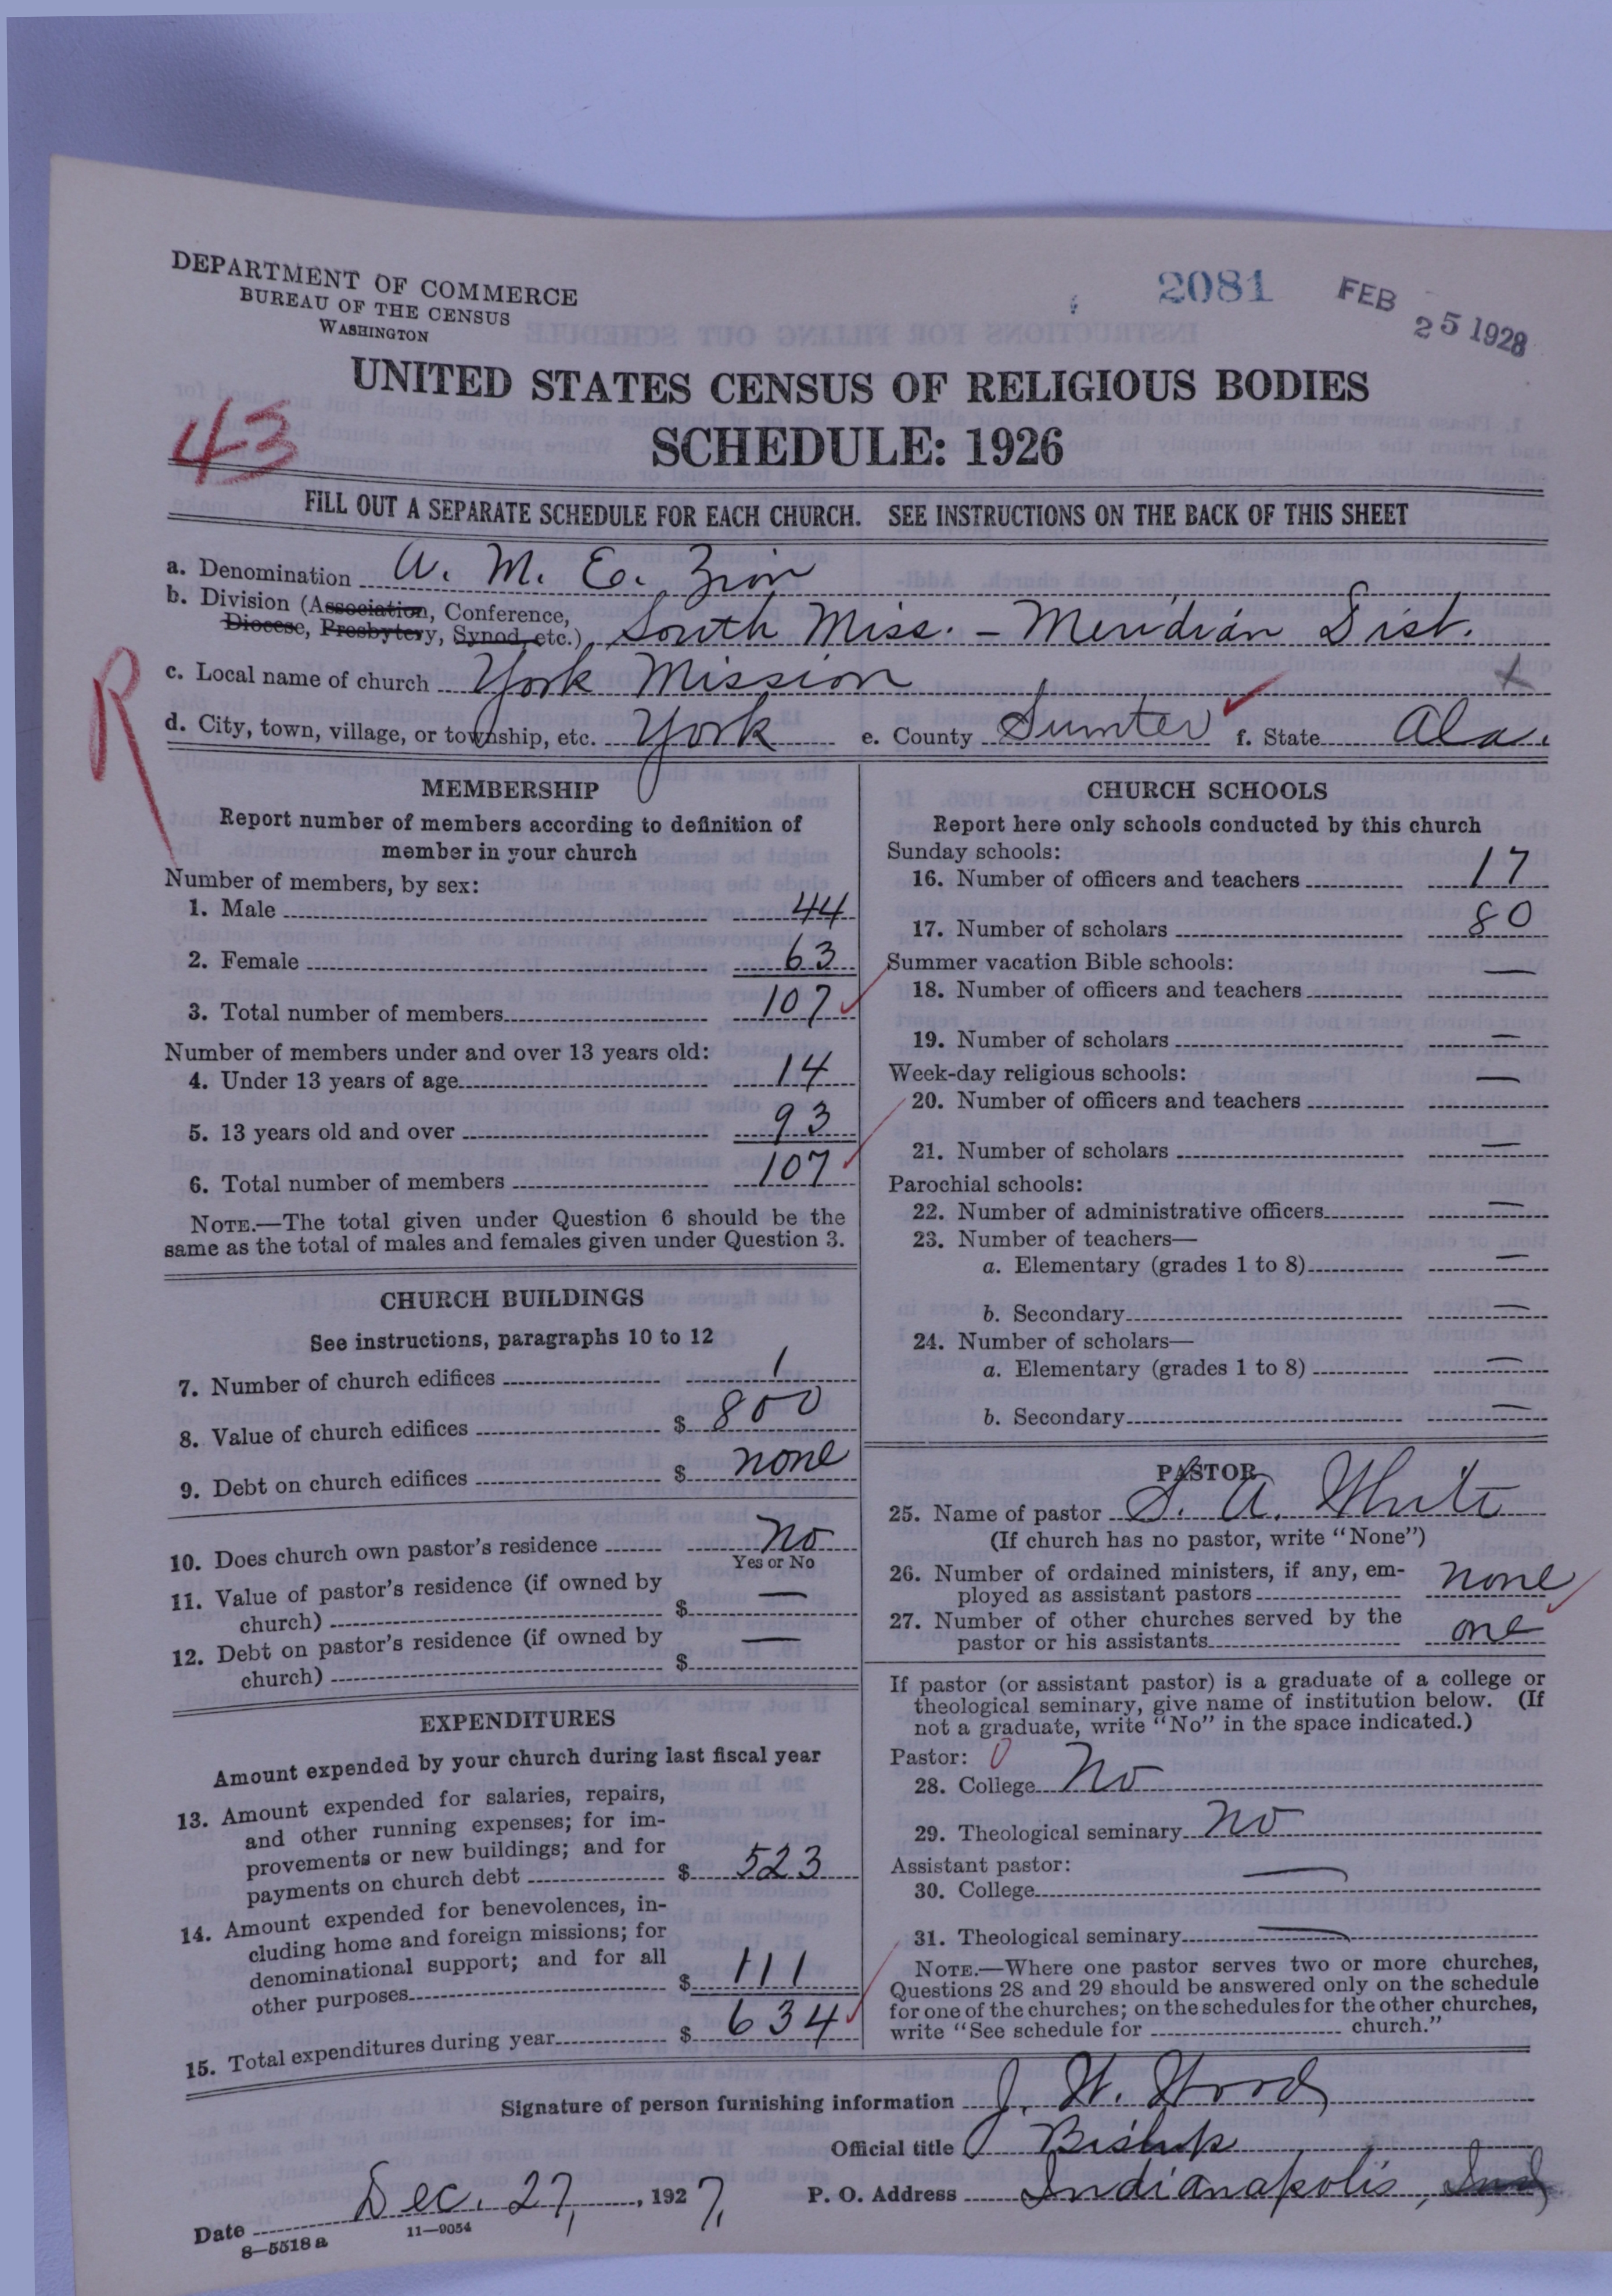 DEPARTMENT OF COMMERCE
BUREAU OF THE CENSUS
WASHINGTON
2081
FEB 25 1928
UNITED STATES CENSUS OF RELIGIOUS BODIES
43
SCHEDULE: 1926
FILL OUT A SEPARATE SCHEDULE FOR EACH CHURCH. SEE INSTRUCTIONS ON THE BACK OF THIS SHEET
a. Denomination A. M. E. Zion
b. Division (Association, Conference,
Diocese, Presbytery, Synod, etc.) South Miss. - Meridian Dist.
R
c. Local name of church York Mission x
d. City, town, village, or township, etc. York e. County Sumter f. State Ala.
MEMBERSHIP
Report number of members according to definition of
member in your church
Number of members, by sex:
1. Male 44
2. Female 63
3. Total number of members 107
Number of members under and over 13 years old:
4. Under 13 years of age 14
5. 13 years old and over 93
6. Total number of members 107
NOTE.—The total given under Question 6 should be the
same as the total of males and females given under Question 3.
CHURCH BUILDINGS
See instructions, paragraphs 10 to 12
7. Number of church edifices 1
8. Value of church edifices $ 800
9. Debt on church edifices $ none
10. Does church own pastor's residence No
Yes or No
11. Value of pastor's residence (if owned by
church) $ —
12. Debt on pastor's residence (if owned by
church) $ —
EXPENDITURES
Amount expended by your church during last fiscal year
13. Amount expended for salaries, repairs,
and other running expenses; for im-
provements or new buildings; and for
payments on church debt $ 523
14. Amount expended for benevolences, in-
cluding home and foreign missions; for
denominational support; and for all
other purposes $ 111
15. Total expenditures during year $ 634
CHURCH SCHOOLS
Report here only schools conducted by this church
Sunday schools:
16. Number of officers and teachers 17
17. Number of scholars 80
Summer vacation Bible schools:
18. Number of officers and teachers —
19. Number of scholars —
Week-day religious schools:
20. Number of officers and teachers —
21. Number of scholars —
Parochial schools:
22. Number of administrative officers —
23. Number of teachers—
a. Elementary (grades 1 to 8) —
b. Secondary —
24. Number of scholars—
a. Elementary (grades 1 to 8) —
b. Secondary —
PASTOR
25. Name of pastor S. A. White
(If church has no pastor, write "None")
26. Number of ordained ministers, if any, em-
ployed as assistant pastors none
27. Number of other churches served by the
pastor or his assistants one
If pastor (or assistant pastor) is a graduate of a college or
theological seminary, give name of institution below. (If
not a graduate, write "No" in the space indicated.)
Pastor: 0
28. College No
29. Theological seminary No
Assistant pastor:
30. College —
31. Theological seminary —
NOTE.—Where one pastor serves two or more churches,
Questions 28 and 29 should be answered only on the schedule
for one of the churches; on the schedules for the other churches,
write "See schedule for church."
Signature of person furnishing information J. W. Wood
Official title Bishop
Date Dec. 27, 1927, P. O. Address Indianapolis, Ind
8—5518a 11—9054